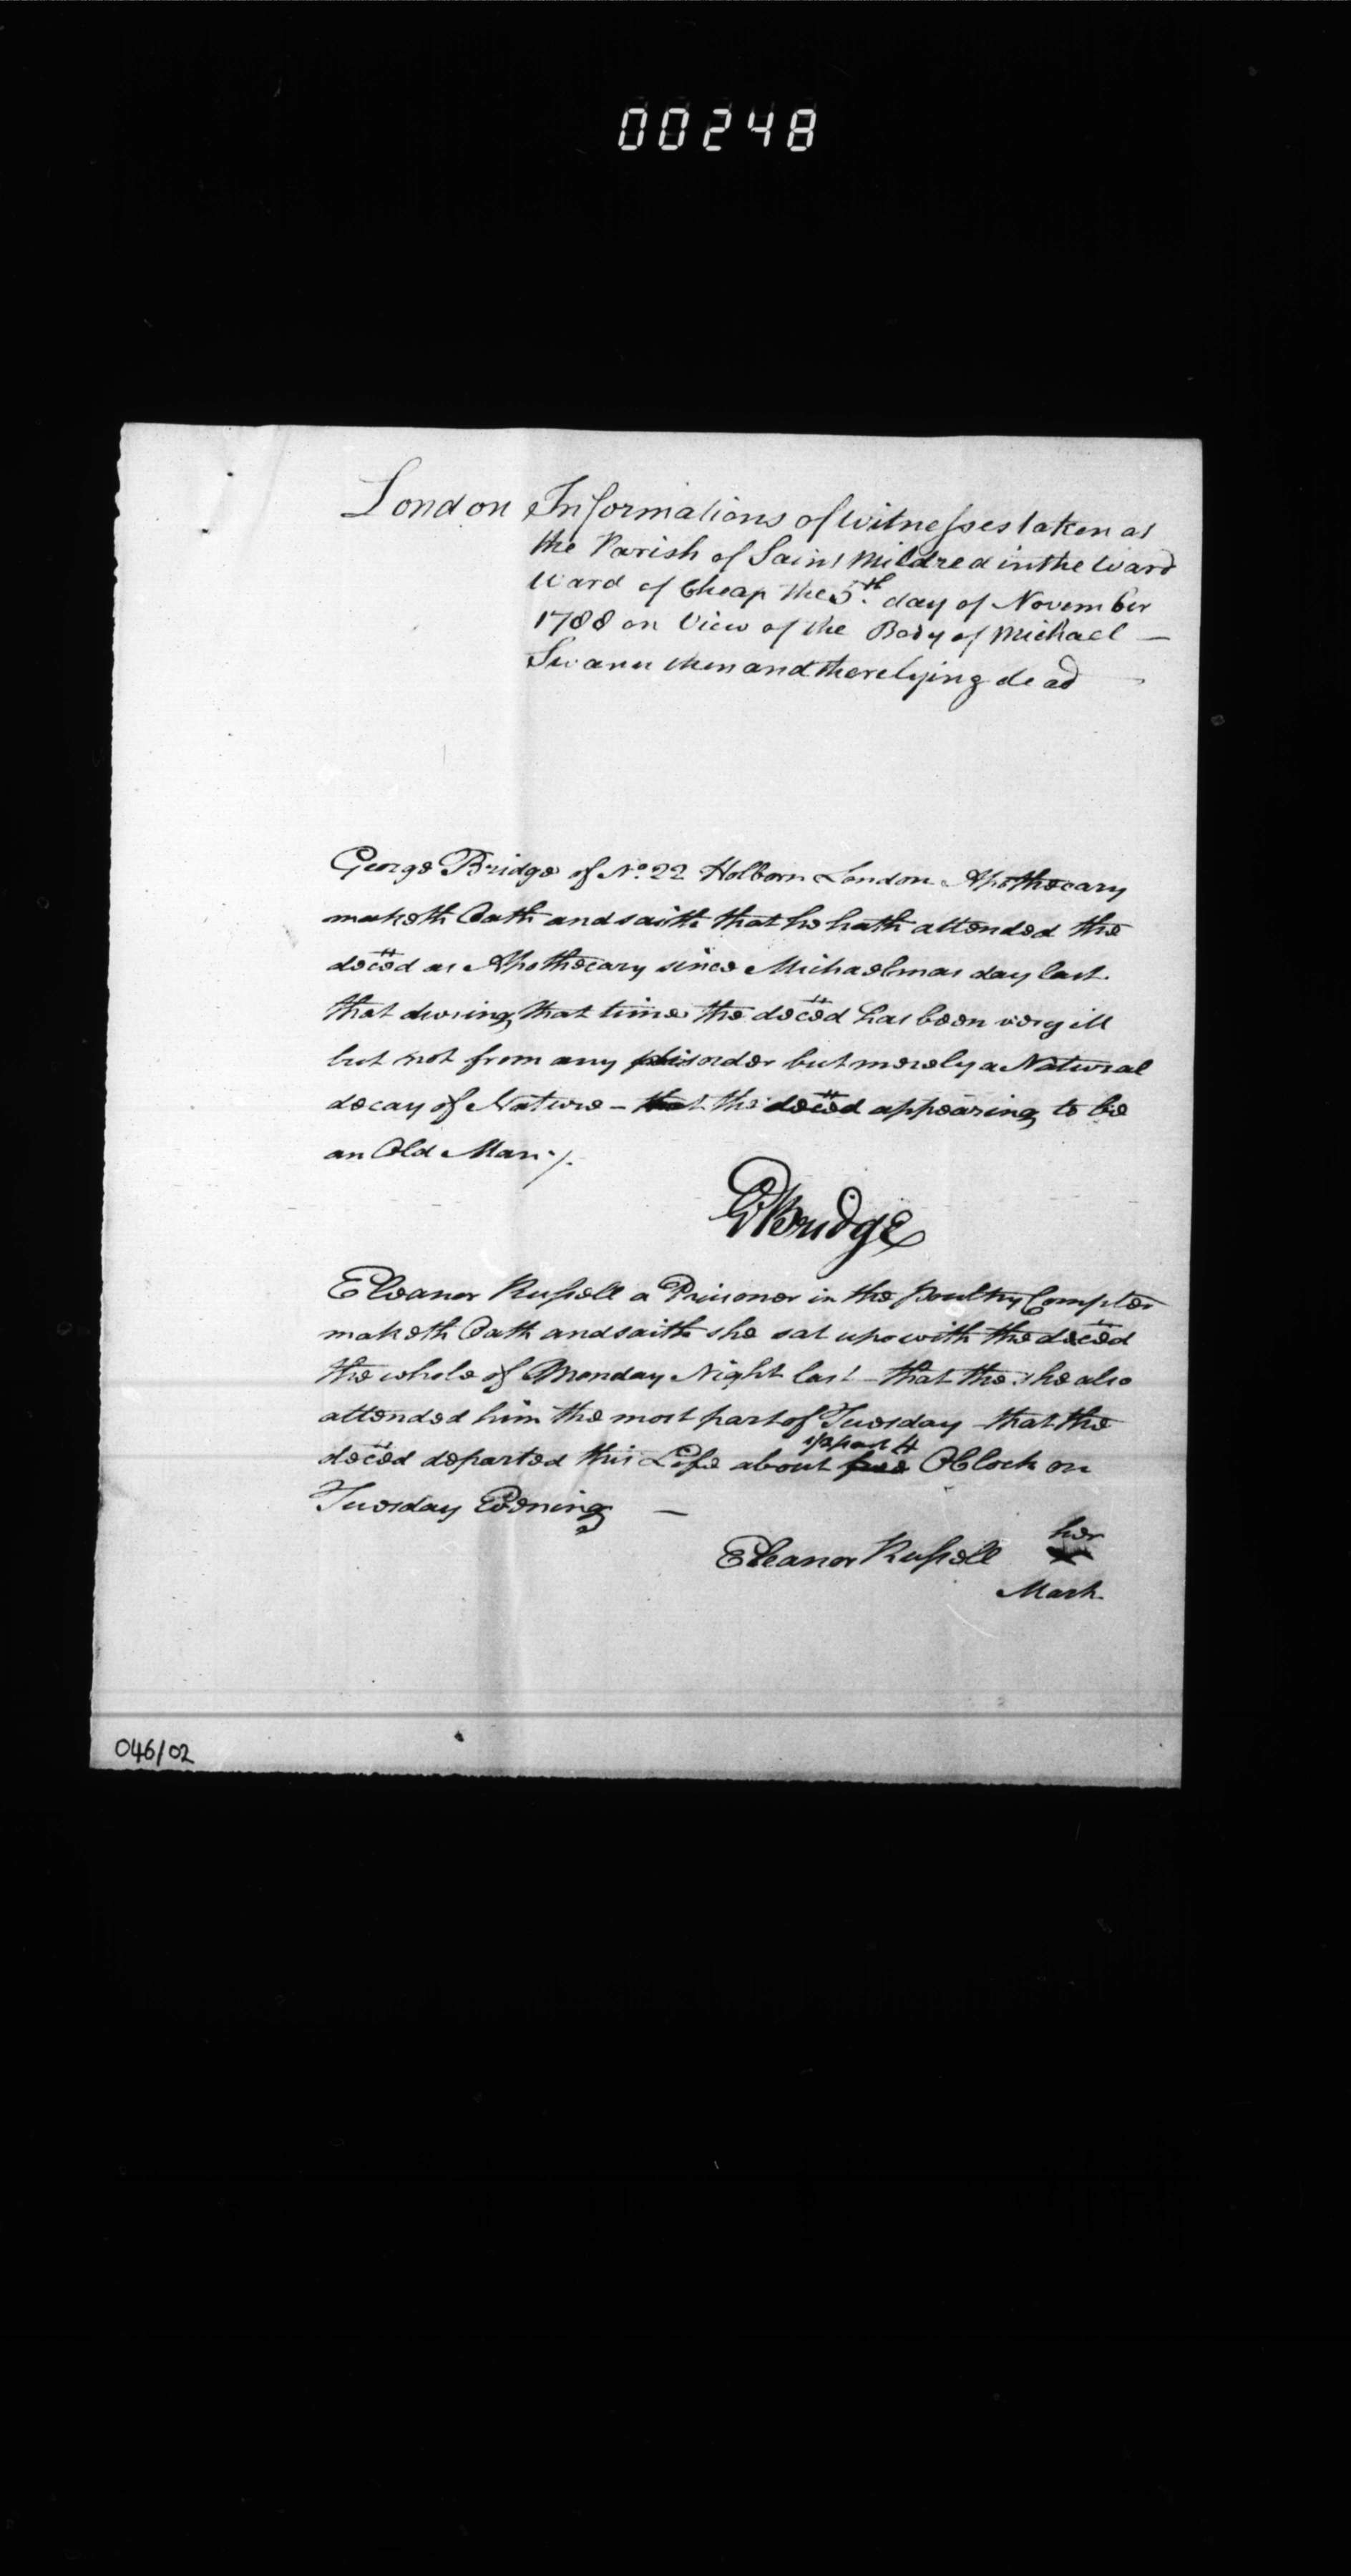 00248
London Informations of Witnesses taken at
the Parish of Saint Mildred in the Ward
Ward of Cheap the 5th. day of November
1788 on View of the Body of Michael —
Swann then and there lying dead —
George Bridge of No. 22 Holborn London Apothecary
maketh Oath and saith that he hath attended the
deced as Apothecary since Michaelmas day last.
that during that time the deced has been very ill
but not from any disorder but merely a Natural
decay of Nature – that the deced appearing to be
an Old Man ·/.
G Bridge
Eleanor Russell a Prisoner in the Poultry Compter
maketh Oath and saith she sat up with the deced
the whole of Monday Night last – that the she also
attended him the most part of Tuesday – that the
1/2 past 4
deced departed this Life about five OClock on
Tuesday Evening —
her
Eleanor Russell X
Mark
046/02